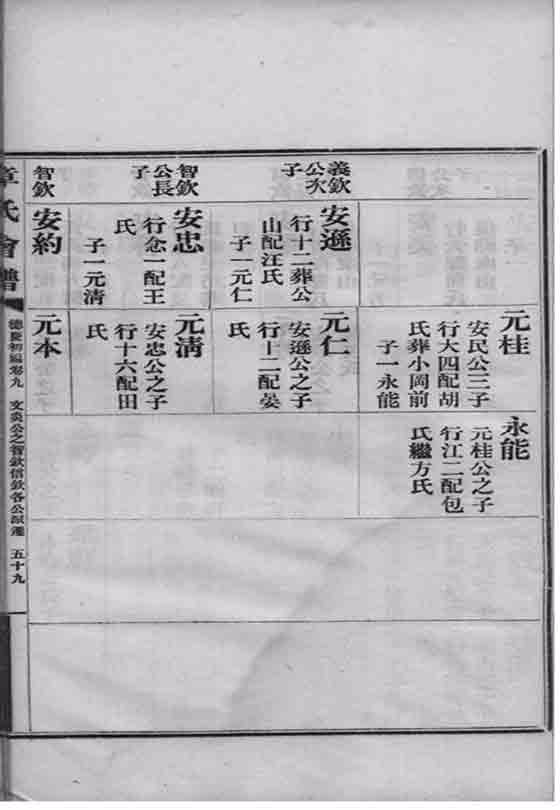 元桂
安民公三子
行大四配胡
氏葬小岡前
子一永能
永能
元桂公之子
行江二配包
氏繼方氏
義欽
公次
子
安遜
行十二葬公
山配汪氏
子一元仁
元仁
安遜公之子
行十二配晏
氏
智欽
公長
子
安忠
行念一配王
氏
子一元清
元清
安忠公之子
行十六配田
氏
智欽
安約
元本
章氏會譜
德慶初編卷九
文炎公之智欽信欽各公派遷
五十九